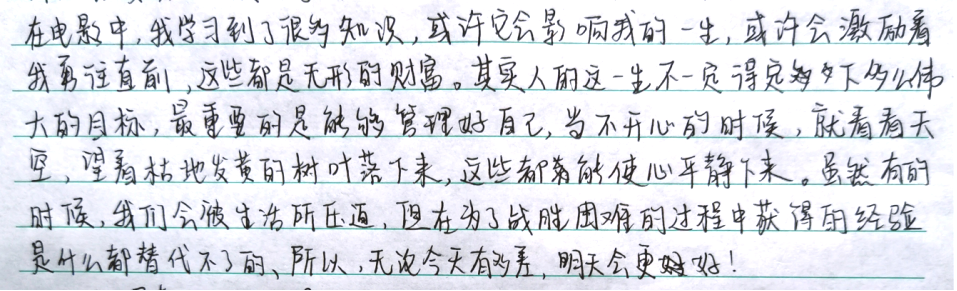 在电影中，我学习到了很多知识，或许它会影响我的一生，或许会激励着
我勇往直前，这些都是无形的财富。其实人的这一生不一定得定下多么伟
大的目标，最重要的是能够管理好自己，当不开心的时候，就看看天
空，望着枯地发黄的树叶落下来，这些都能使心平静下来。虽然有的
时候，我们会被生活所压迫，但在为了战胜困难的过程中获得的经验
是什么都替代不了的、所以，无论今天有多差，明天会更好！